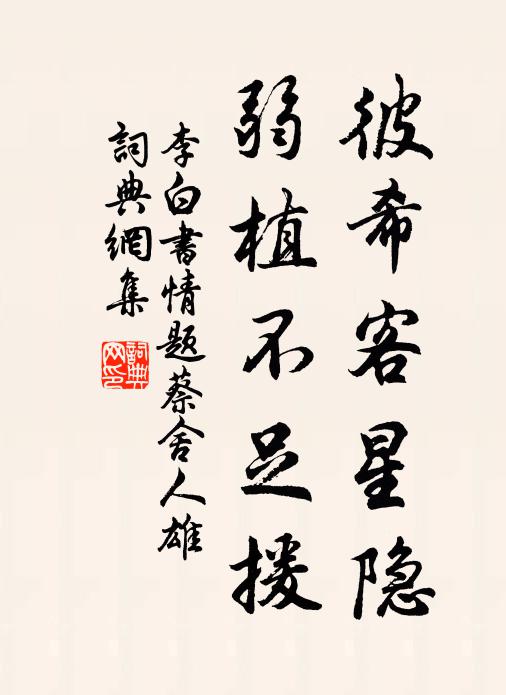 彼希客星隐
弱植不足援
李白書情題蔡舍人雄
詞典網集
詞典网印